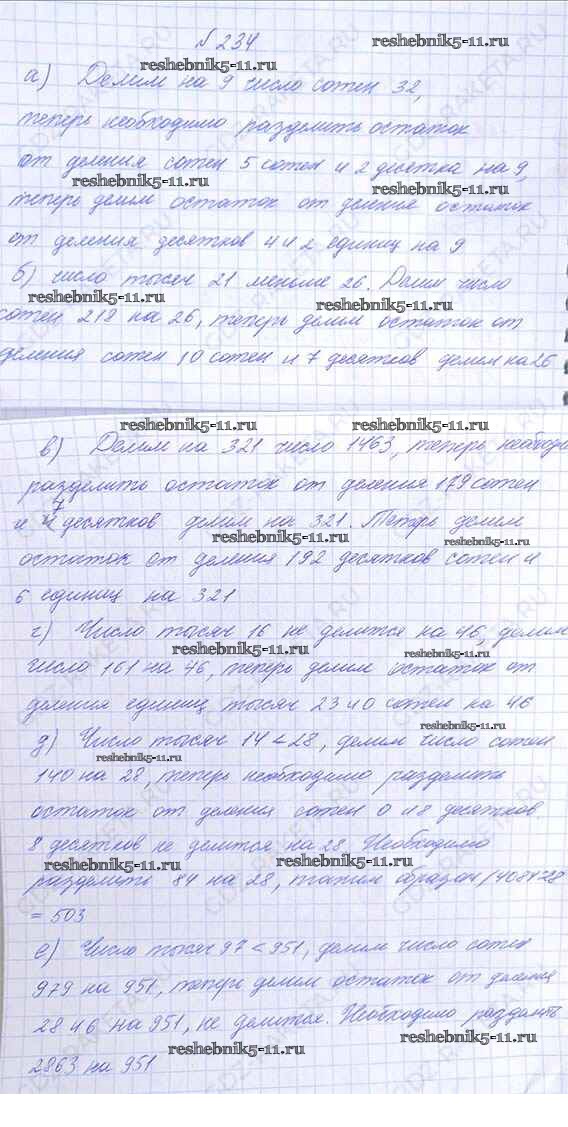 № 234
reshebnik5-11.ru
reshebnik5-11.ru
а) Делим на 9 число сотен 32,
теперь необходимо разделить остаток
от деления сотен 5 сотен и 2 десятка на 9,
reshebnik5-11.ru
reshebnik5-11.ru
теперь делим остаток от деления остаток
от деления десятков 4 и 2 единиц на 9
б) число тысяч 21 меньше 26. Делим число
reshebnik5-11.ru
reshebnik5-11.ru
сотен 218 на 26, теперь делим остаток от
деления сотен 10 сотен и 7 десятков делим на 26
reshebnik5-11.ru
reshebnik5-11.ru
в) Делим на 321 число 1463, теперь необходи
разделить остаток от деления 179 сотен
и 7 десятков делим на 321. Теперь делим
reshebnik5-11.ru
reshebnik5-11.ru
остаток от деления 192 десятков сотен и
6 единиц на 321
г) Число тысяч 16 не делится на 46, делим
reshebnik5-11.ru
reshebnik5-11.ru
число 161 на 46, теперь делим остаток от
деления единиц тысяч 23 и 0 сотен на 46
reshebnik5-11.ru
д) Число тысяч 14 < 28, делим число сотен
reshebnik5-11.ru
140 на 28, теперь необходимо разделить
остаток от деления сотен 0 и 8 десятков.
8 десятков не делится на 28. Необходимо
reshebnik5-11.ru
reshebnik5-11.ru
разделить 84 на 28, таким образом 14084:28
= 503
е) Число тысяч 97 < 951, делим число сотен
979 на 951, теперь делим остаток от деления
28 и 6 на 951, не делится. Необходимо разделить
reshebnik5-11.ru
reshebnik5-11.ru
2863 на 951
GDZ-RAKETA.RU